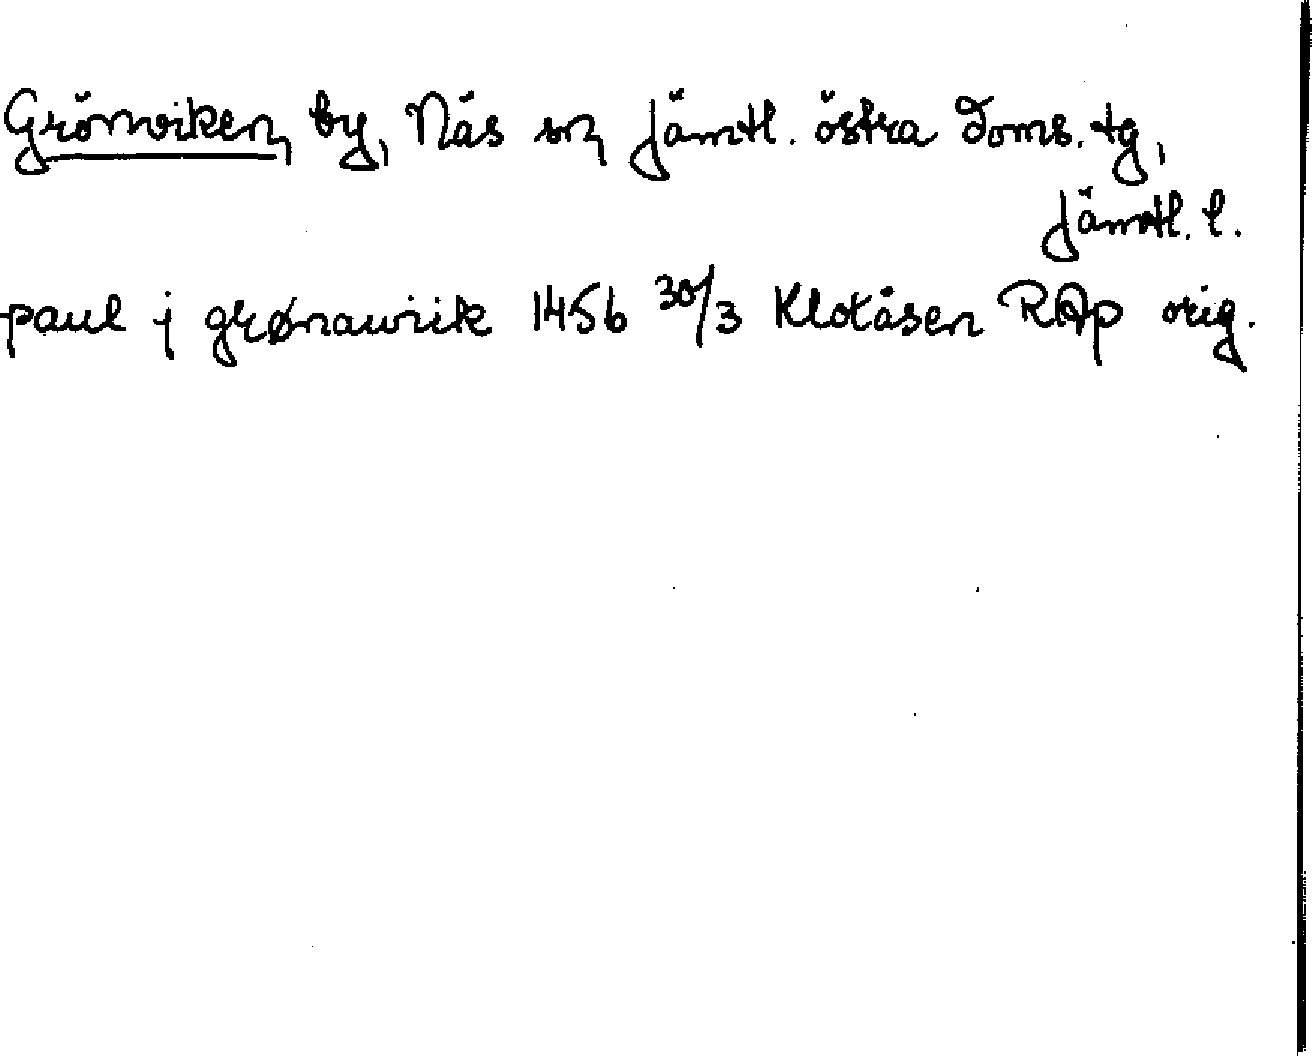 Grönviken, by, Näs sn, Jämtl. östra doms. tg,
Jämtl. l.
paul j grønawiik 1456 30/3 Klotåsen RAp orig.